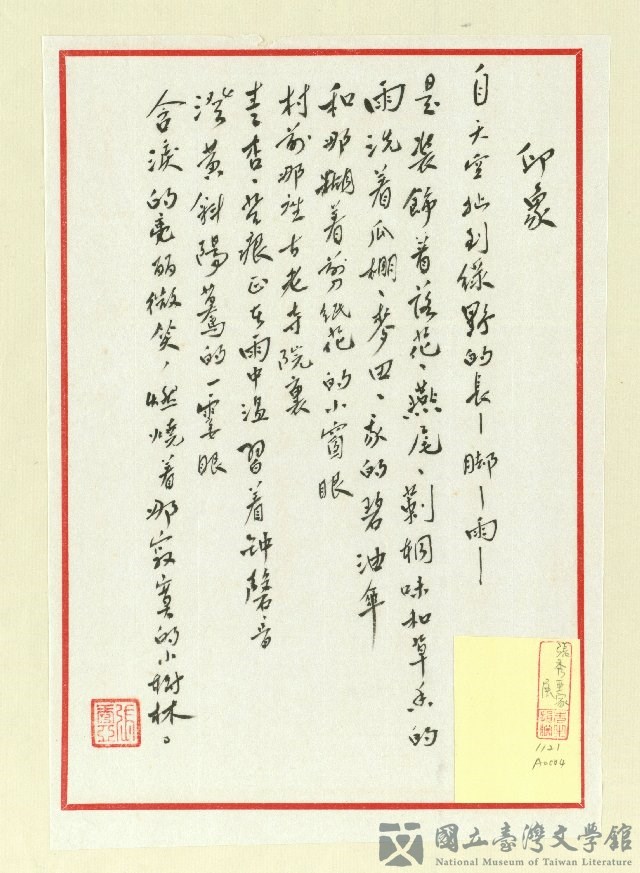 印象
自天空扯到綠野的長—腳—雨—
是裝飾着落花、燕尾、莿桐味和草香的
雨洗着瓜棚、麥田、我的碧油傘
和那糊着剪紙花的小窗眼
村前那座古老寺院裏
青杏、苔痕正在雨中温習着鐘磬音
澄黃斜陽驀的一霎眼
含淚的亮麗微笑，燃燒着那寂寞的小樹林。
1121
國立臺灣文學館
National Museum of Taiwan Literature